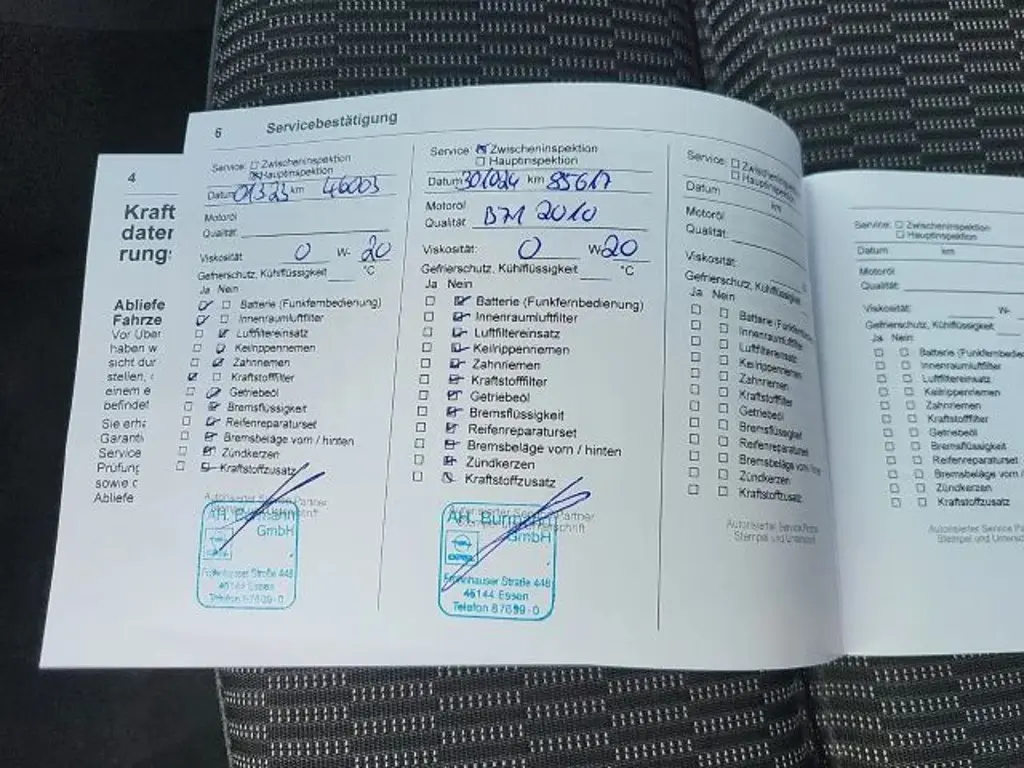 4
Kraft
daten
rung
Abliefe
Fahrze
Vor Über
haben w
sicht dur
stellen,
einem e
befindet
Sie erha
Garanti
Service
Prüfung
sowie
Abliefe
6 Servicebestätigung
Service: Zwischeninspektion
Hauptinspektion
Datum km 46003
Motoröl
Qualität:
Viskosität: 0 W- 20
Gefrierschutz, Kühlflüssigkeit °C
Ja Nein
Batterie (Funkfernbedienung)
Innenraumluftfilter
Luftfiltereinsatz
Keilrippenriemen
Zahnriemen
Kraftstofffilter
Getriebeöl
Bremsflüssigkeit
Reifenreparaturset
Bremsbeläge vorn / hinten
Zündkerzen
Kraftstoffzusatz
Partner
AH. Burmann
GmbH
OPEL
Frohnhauser Straße 448
45144 Essen
Telefon 87699-0
Service: Zwischeninspektion
Hauptinspektion
Datum 301024 km 85617
Motoröl
Qualität: 2010
Viskosität: 0 W- 20
Gefrierschutz, Kühlflüssigkeit °C
Ja Nein
Batterie (Funkfernbedienung)
Innenraumluftfilter
Luftfiltereinsatz
Keilrippenriemen
Zahnriemen
Kraftstofffilter
Getriebeöl
Bremsflüssigkeit
Reifenreparaturset
Bremsbeläge vorn / hinten
Zündkerzen
Kraftstoffzusatz
Autorisierter Service Partner
AH. Burmann
GmbH
OPEL
Frohnhauser Straße 448
45144 Essen
Telefon 87699-0
Service: Zwischeninspektion
Hauptinspektion
Datum km
Motoröl
Qualität:
Viskosität:
Gefrierschutz, Kühlflüssigkeit
Ja Nein
Batterie (Funkfernbe
Innenraumluftfilter
Luftfiltereinsatz
Keilrippenriemen
Zahnriemen
Kraftstofffilter
Getriebeöl
Bremsflüssigkeit
Reifenreparaturset
Bremsbeläge vorn
Zündkerzen
Kraftstoffzusatz
Autorisierter Service Partne
Stempel und Unterschrift
Service: Zwischeninspektion
Hauptinspektion
Datum km
Motoröl
Qualität:
Viskosität: W-
Gefrierschutz, Kühlflüssigkeit
Ja Nein
Batterie (Funkfernbedienu
Innenraumluftfilter
Luftfiltereinsatz
Keilrippenriemen
Zahnriemen
Kraftstofffilter
Getriebeöl
Bremsflüssigkeit
Reifenreparaturset
Bremsbeläge vorn /
Zündkerzen
Kraftstoffzusatz
Autorisierter Service Pa
Stempel und Untersc